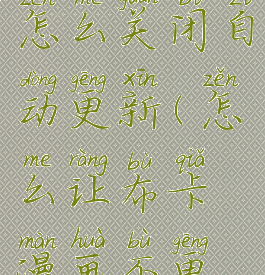 zěn me guān bì zì
怎么关闭自
dòng gēng xīn zěn
动更新(怎
me ràng bù qiǎ
么让布卡
màn huà bù gēng
漫画不更